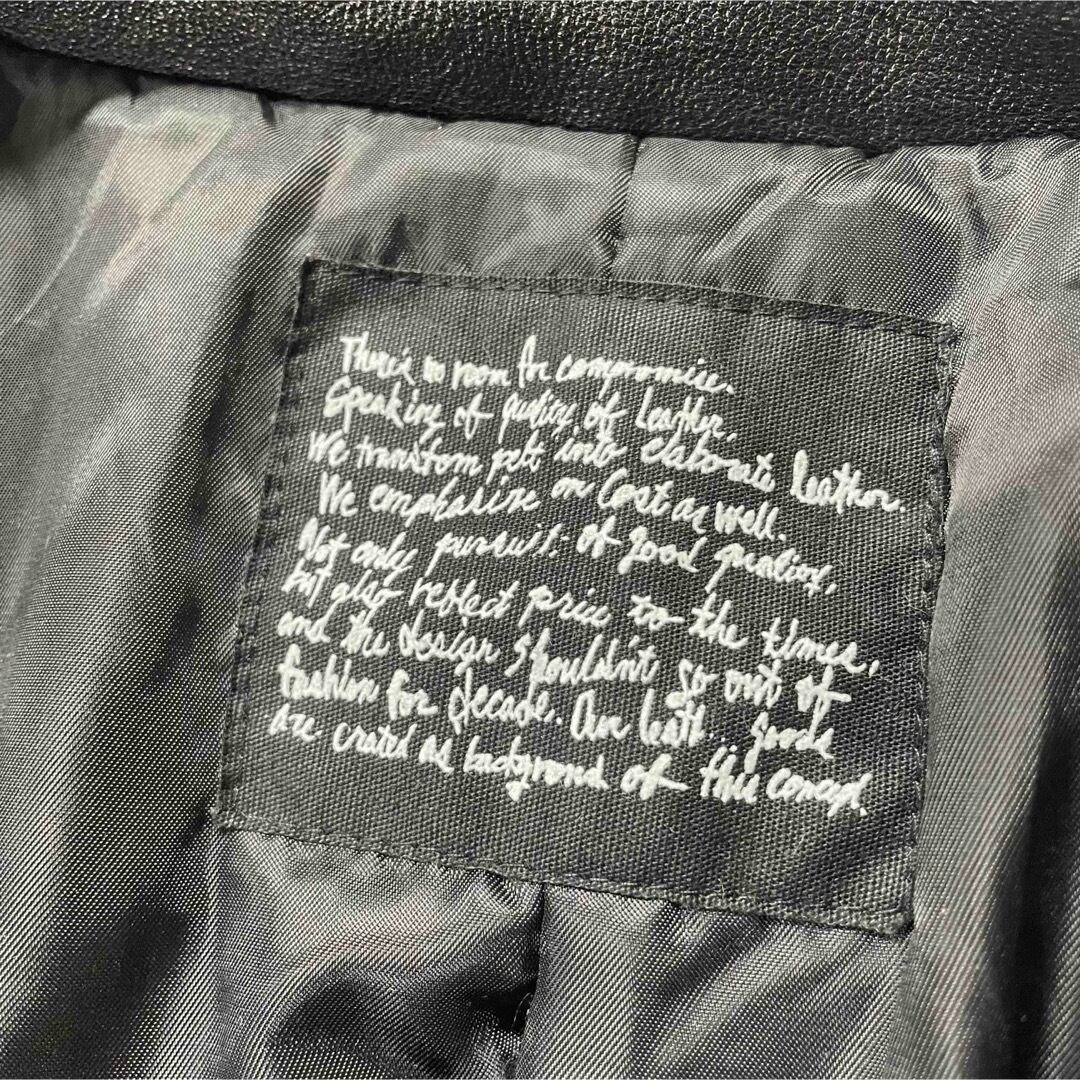 There's no room for compromise.
Speaking of quality of leather,
We transform pelt into elaborate leather.
We emphasize on Cost as well.
Not only pursuit of good
but also reflect price to the times,
and the design shouldn't go out of
fashion for decade. Our goods
are crated as background of this concept.